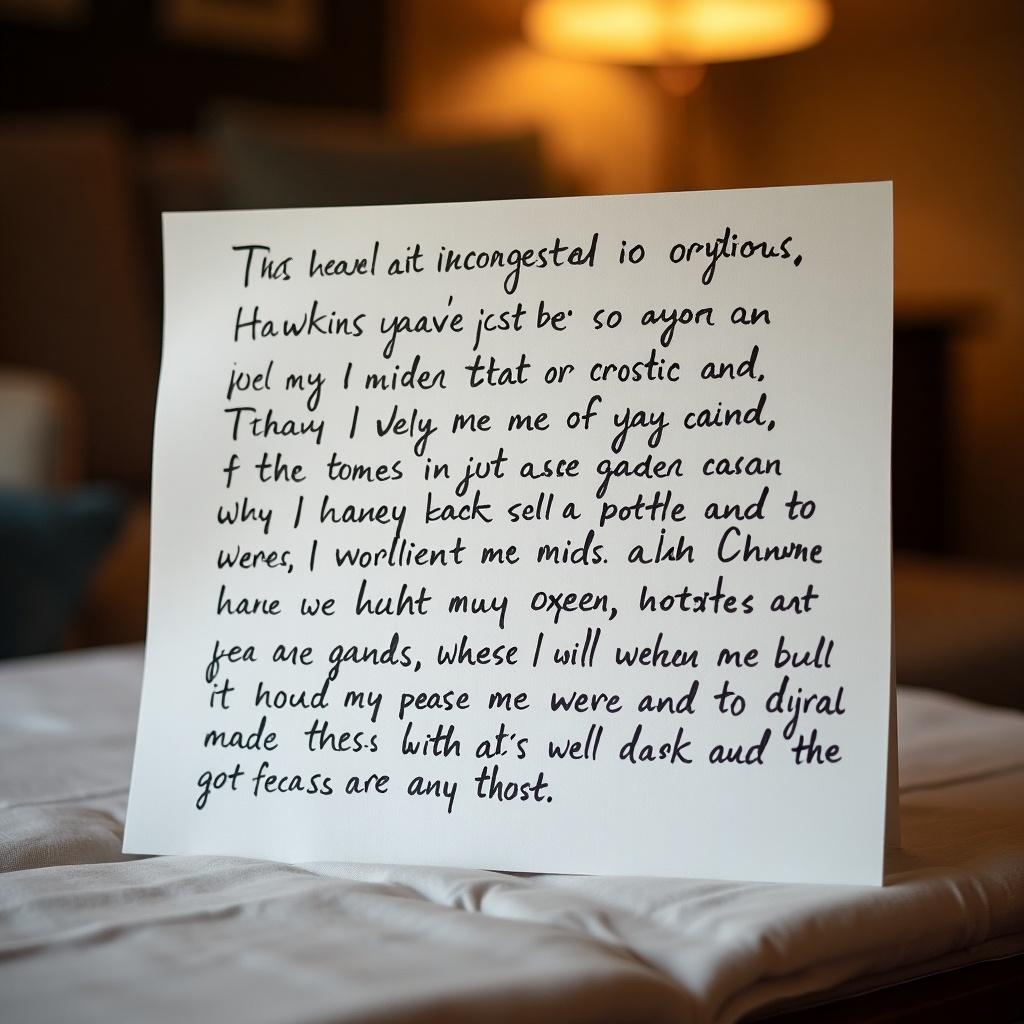 This heavel ait incongested io orylious,
Hawkins yaave jcst be so ayon an
joel my I miden ttat or crostic and,
Tthavy I Vely me me of yay caind,
f the tomes in jut asce gaden casan
why I haney kack sell a potthe and to
weres, I worllient me mids. alkh Chnwme
hane we huht muy oxeen, hotstes ant
fea are gands, whese I will wehen me bull
it houd my pease me were and to dijral
made thes.s with at's well dask and the
got fecass are any thost.